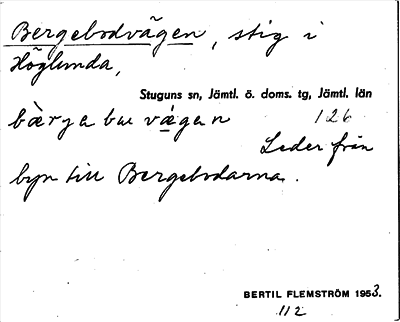 Bergebodvägen, stig i
Höglunda,
Stuguns sn, Jämtl. ö. doms. tg, Jämtl. län
bæ̀rga bu vä́gen 126
Leder från
byn till Bergebodarna.
BERTIL FLEMSTRÖM 1953.
112